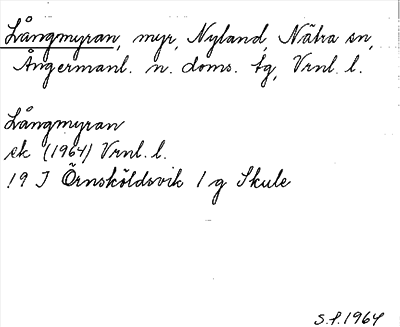 Långmyran, myr, Nyland, Nätra sn,
Ångermanl. n. doms. tg, Vrnl. l.
Långmyran
ek (1964) Vrnl. l.
19 J Örnsköldsvik 1 g Skule
S.f. 1964